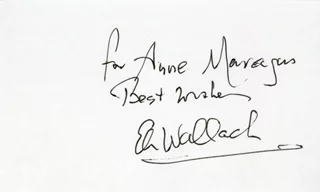 for Anne Maragus
Best Wishes
Eli Wallach